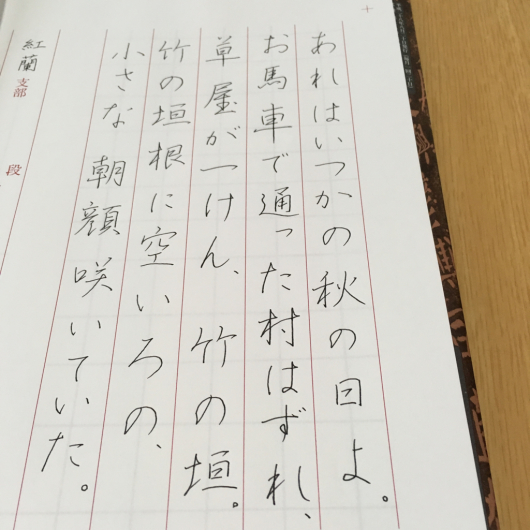 あれはいつかの秋の日よ。
お馬車で通った村はずれ、
草屋が一けん、竹の垣。
竹の垣根に空いろの、
小さな朝顔咲いていた。
紅蘭支部
段